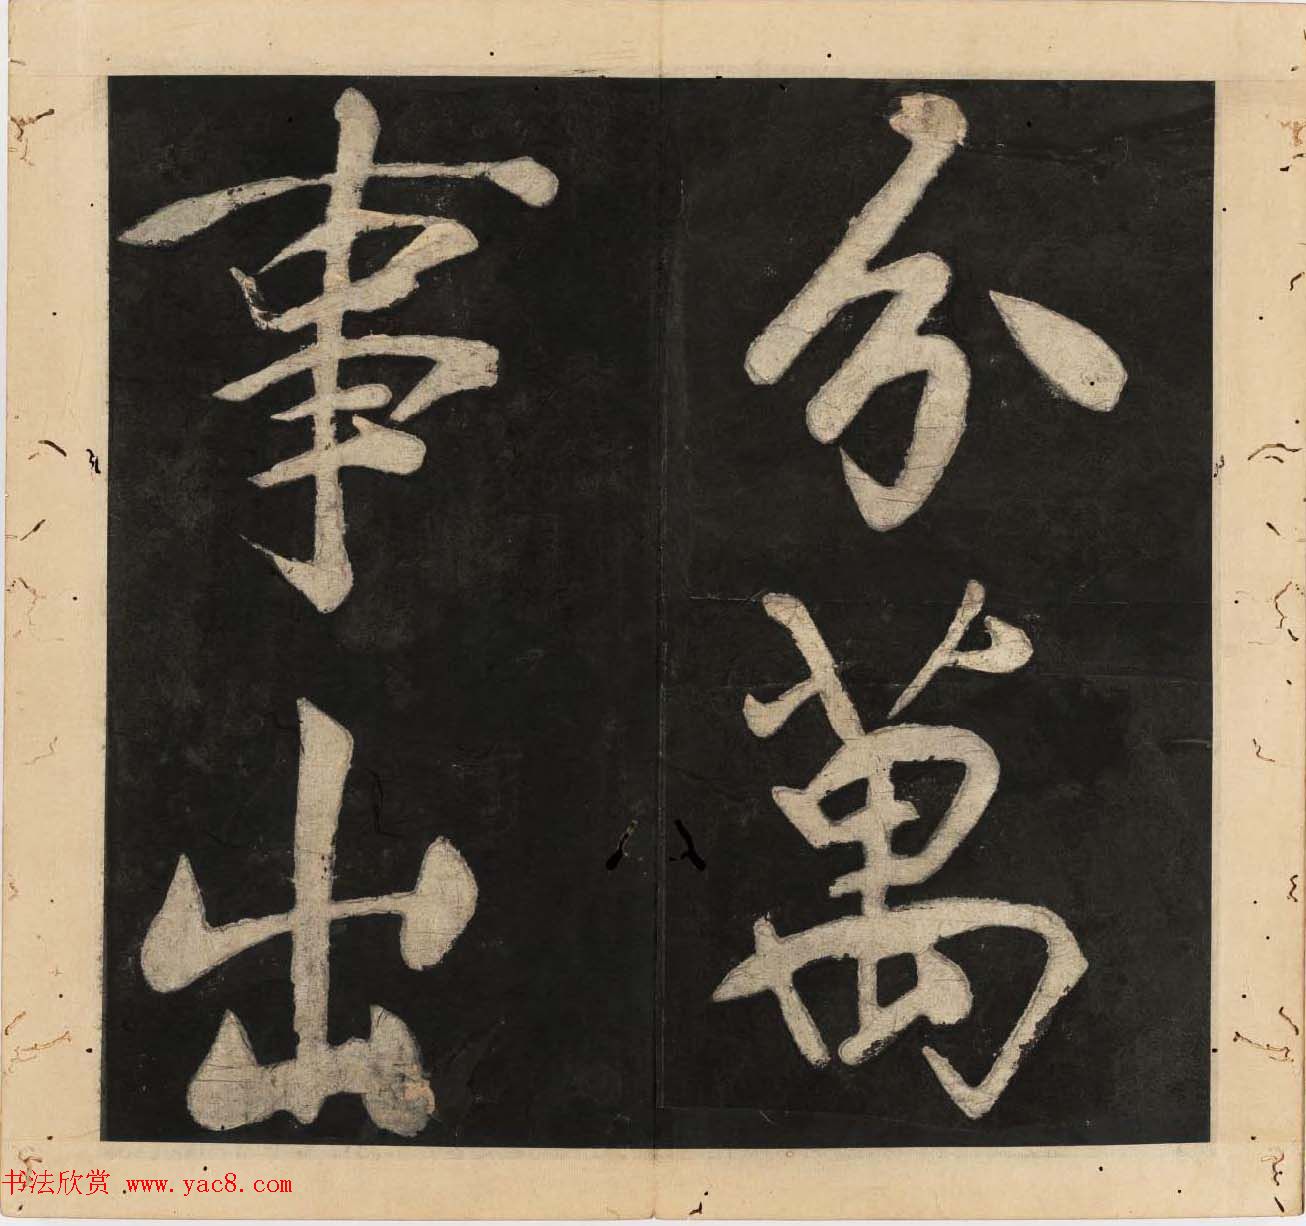 分萬
事出
书法欣赏 www.yac8.com